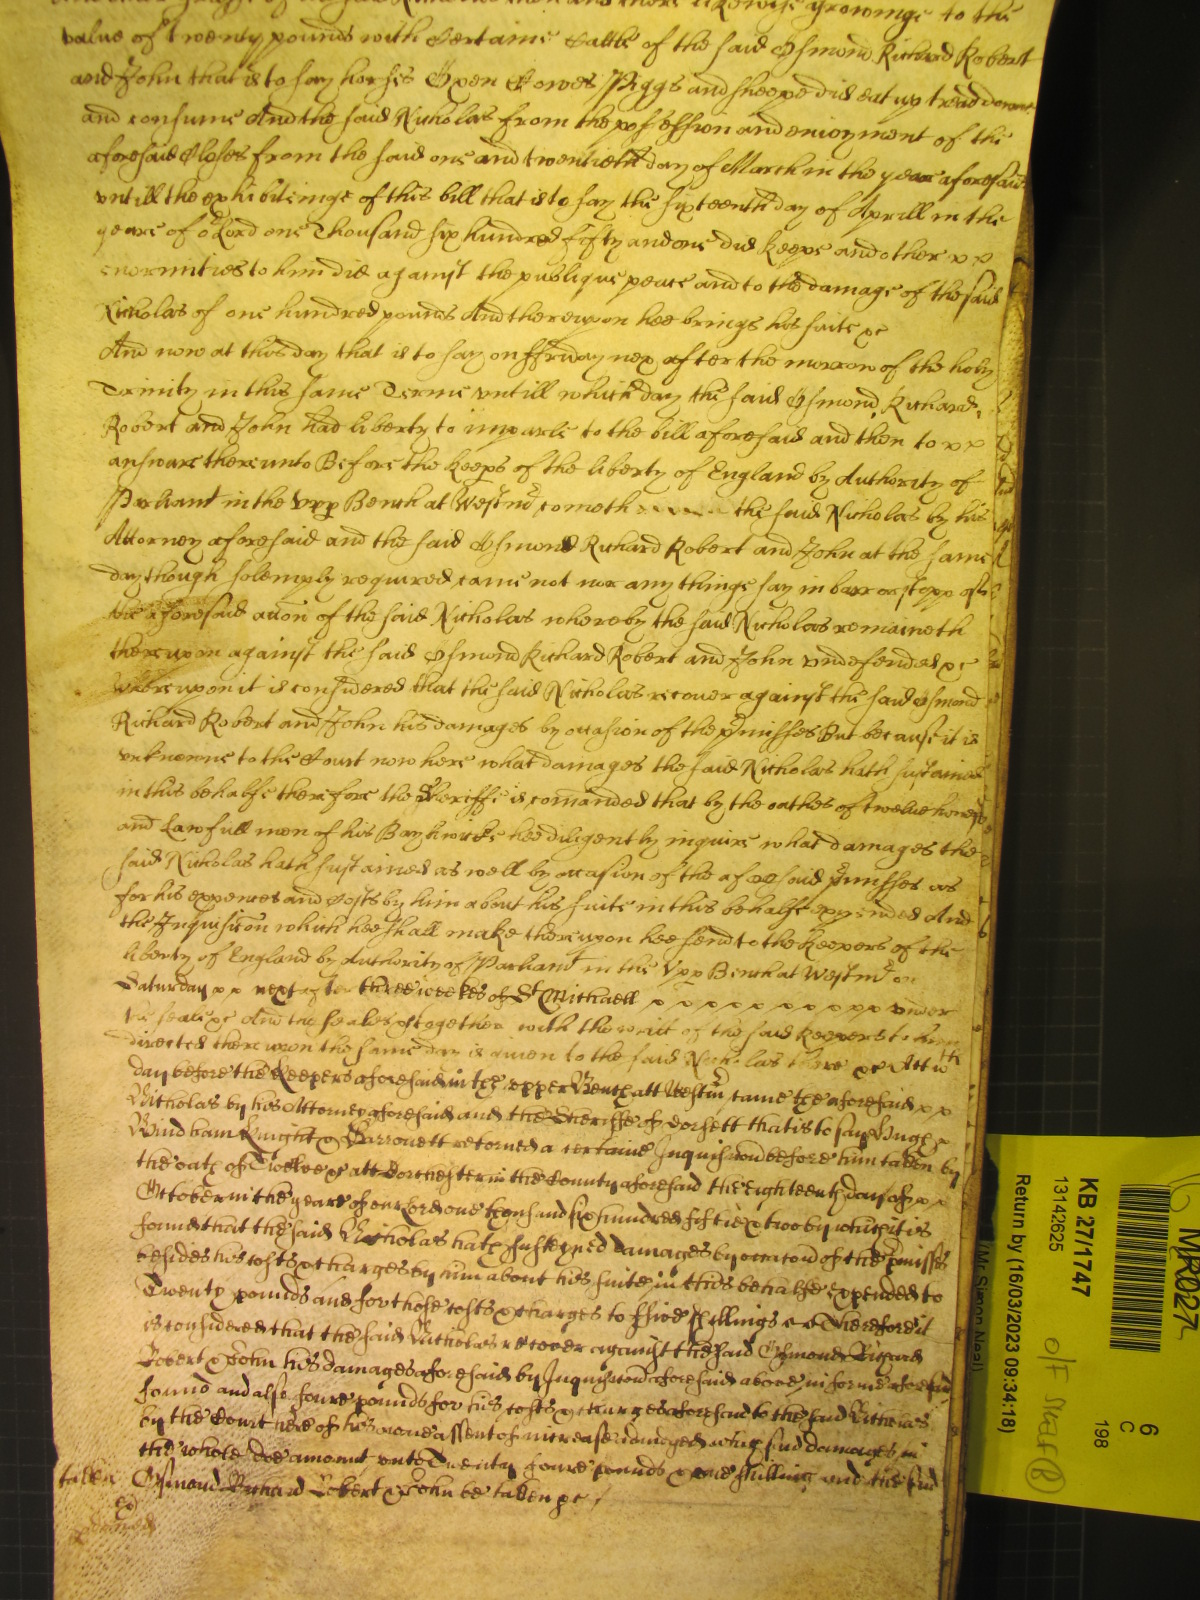 value of twenty pounds with Certaine Cattle of the said Osmond Richard Robert
and John that is to say horses Oxen Cowes Piggs and sheepe did eat up tread downe
and consume And the said Nicholas from the possession and enioyment of the
aforesaid Closes from the said one and twentieth day of March in the yeare aforesaid
untill the exhibitinge of this bill that is to say the sixteenth day of Aprill in the
yeare of or Lord one Thousand six hundred fifty and one did keepe and other x x
enormities to him did against the publique peace and to the damage of the said
Nicholas of one hundred pounds And thereupon hee brings his suite &c
And now at this day that is to say on ffriday nex after the morrow of the holy
Trinity in this same Terme untill which day the said Osmond, Richard,
Robert and John had liberty to imparle to the bill aforesaid and then to x x
answare thereunto Before the keeps of the liberty of England by Authority of
Parliamt in the Upp Bench at Westmr cometh the said Nicholas by his
Attorney aforesaid and the said Osmond Richard Robert and John at the same
day though solemply required came not nor any thinge say in barr or stopp of
the aforesaid accon of the said Nicholas whereby the said Nicholas remaineth
thereupon against the said Osmond Richard Robert and John undefended &c
Whereupon it is considered that the said Nicholas recover against the said Osmond
Richard Robert and John his damages by occasion of the pmisses But because it is
unknowne to the Court now here what damages the said Nicholas hath sustained
in this behalfe therefore the Sheriffe is comanded that by the oathes of twelve honest
and Lawfull men of his Baylywicke hee diligently inquire what damages the
said Nicholas hath sustained as well by occasion of the aforesaid pmisses as
for his expences and Costs by him about his suite in this behalfe expended And
the Inquisicon which hee shall make thereupon hee send to the keepers of the
liberty of England by Authority of Parliamt in the Upp Bench at Westmr on
Saturday x x next after three weekes of St Michaell x x x x x x x x x x under
the seale &c And the seales &c together with the writ of the said keepers to him
directed thereupon the same day is given to the said Nicholas there &c Att wch
day before the Keepers aforesaid in the upper Bench att Westmr came the aforesaid x x
Nicholas by his Attorney aforesaid and the Sheriffe of Dorsett that is to say Hugh
Windham Knight & Barronett retorned a certaine Inquisicon before him taken by
the oath of Twelve &c att Dorchester in the County aforesaid the Eighteenth day of x x
October in the yeare of our Lord one thousand six hundred fiftie & two by which it is
found that the said Nicholas hath susteyned damages by occasion of the pmisses
besides his costs & charges by him about his suite in this behalfe expended to
Twenty pounds and for those costs & charges to shillings Therefore it
is considered that the said Nicholas recover against the said Osmond Richard
Robert & John his damages aforesaid by Inquisicon aforesaid above in forme aforesaid
found and also foure pounds for his costs & charges aforesaid to the said Nicholas
by the Court here of his owne assent of increase adiudged which said damages in
the whole doe amount unto Twenty foure pounds & one shilling and the said
Osmond Richard Robert & John be taken &c
taken
KB 27/1747
13142625
Return by (16/03/2023 09:34:18)
(Mr Simon Neal)
6
C
198